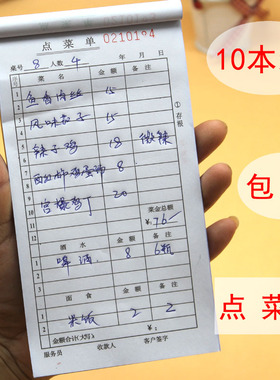 点菜单 0210194
桌号 8 人数 4 年 月 日
菜名 金额 备注
1 鱼香肉丝 15
2 风味茄子 15
3 辣子鸡 18 微辣
4 西红柿鸡蛋汤 8
5 宫爆鸡丁 20
菜金总额
¥:76
酒水 金额 备注
1 啤酒 8 6瓶
2
面食 金额 备注
1 米饭 2 2
2
金额合计(大写): ¥:
服务员 收款人 客户签字
①存根
10本
包
点菜